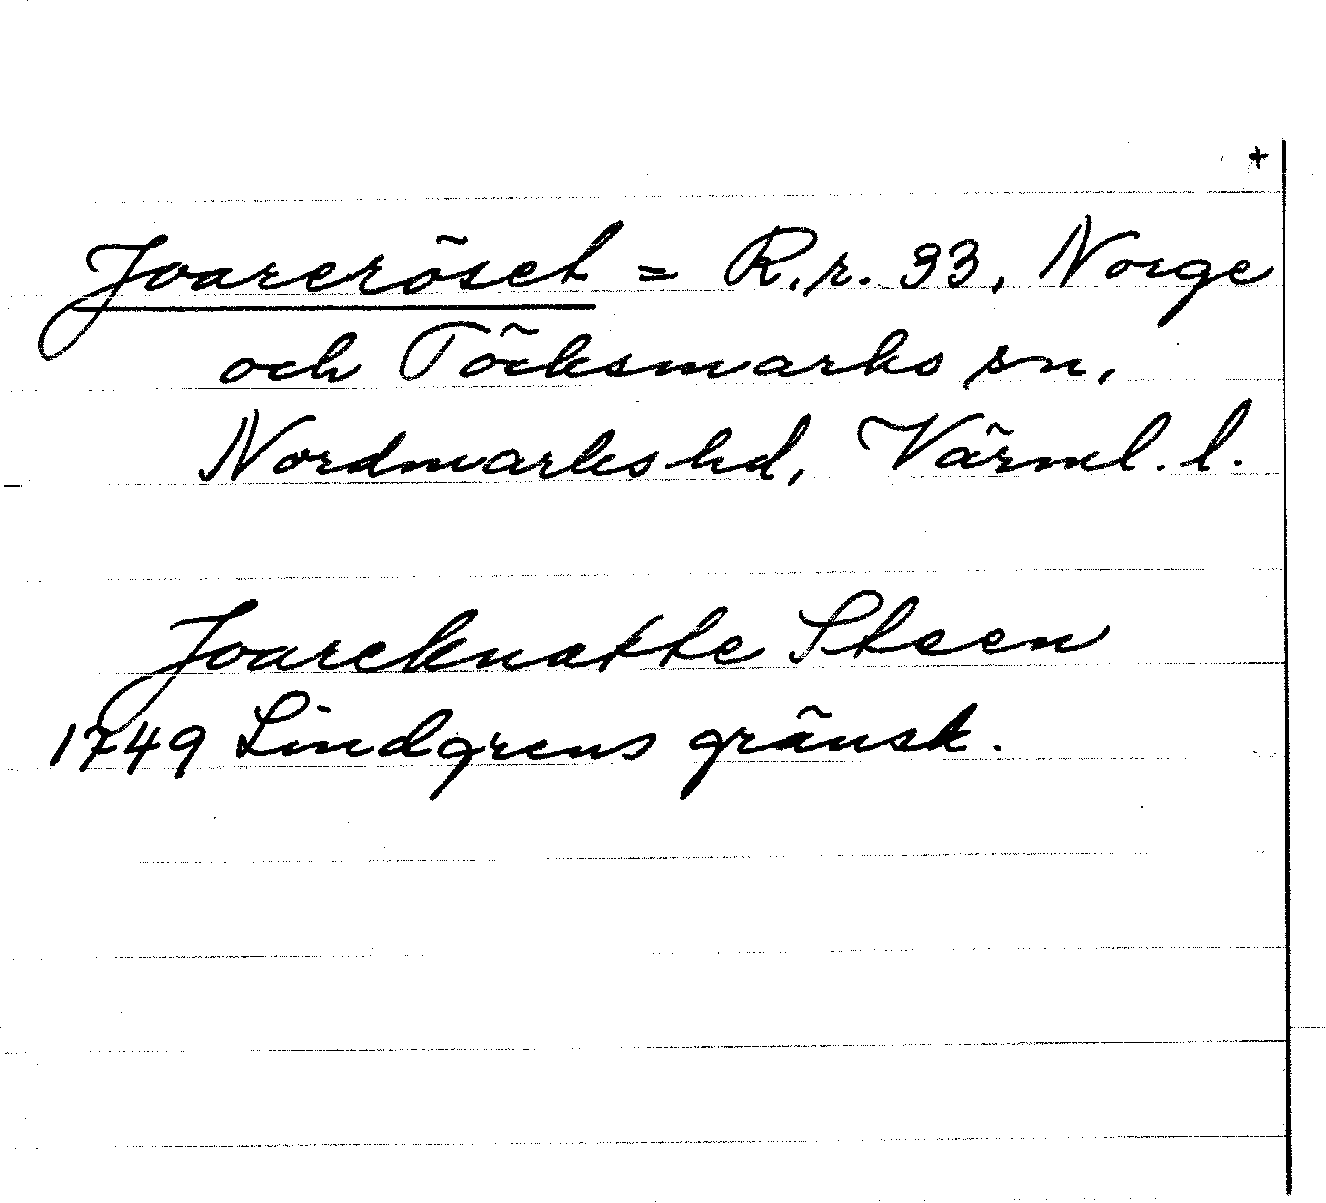 +
Joareröset = R.r. 93, Norge
och Töcksmarks sn,
Nordmarks hd, Värml. l.
Joareknatte Steen
1749 Lindgrens gränsk.